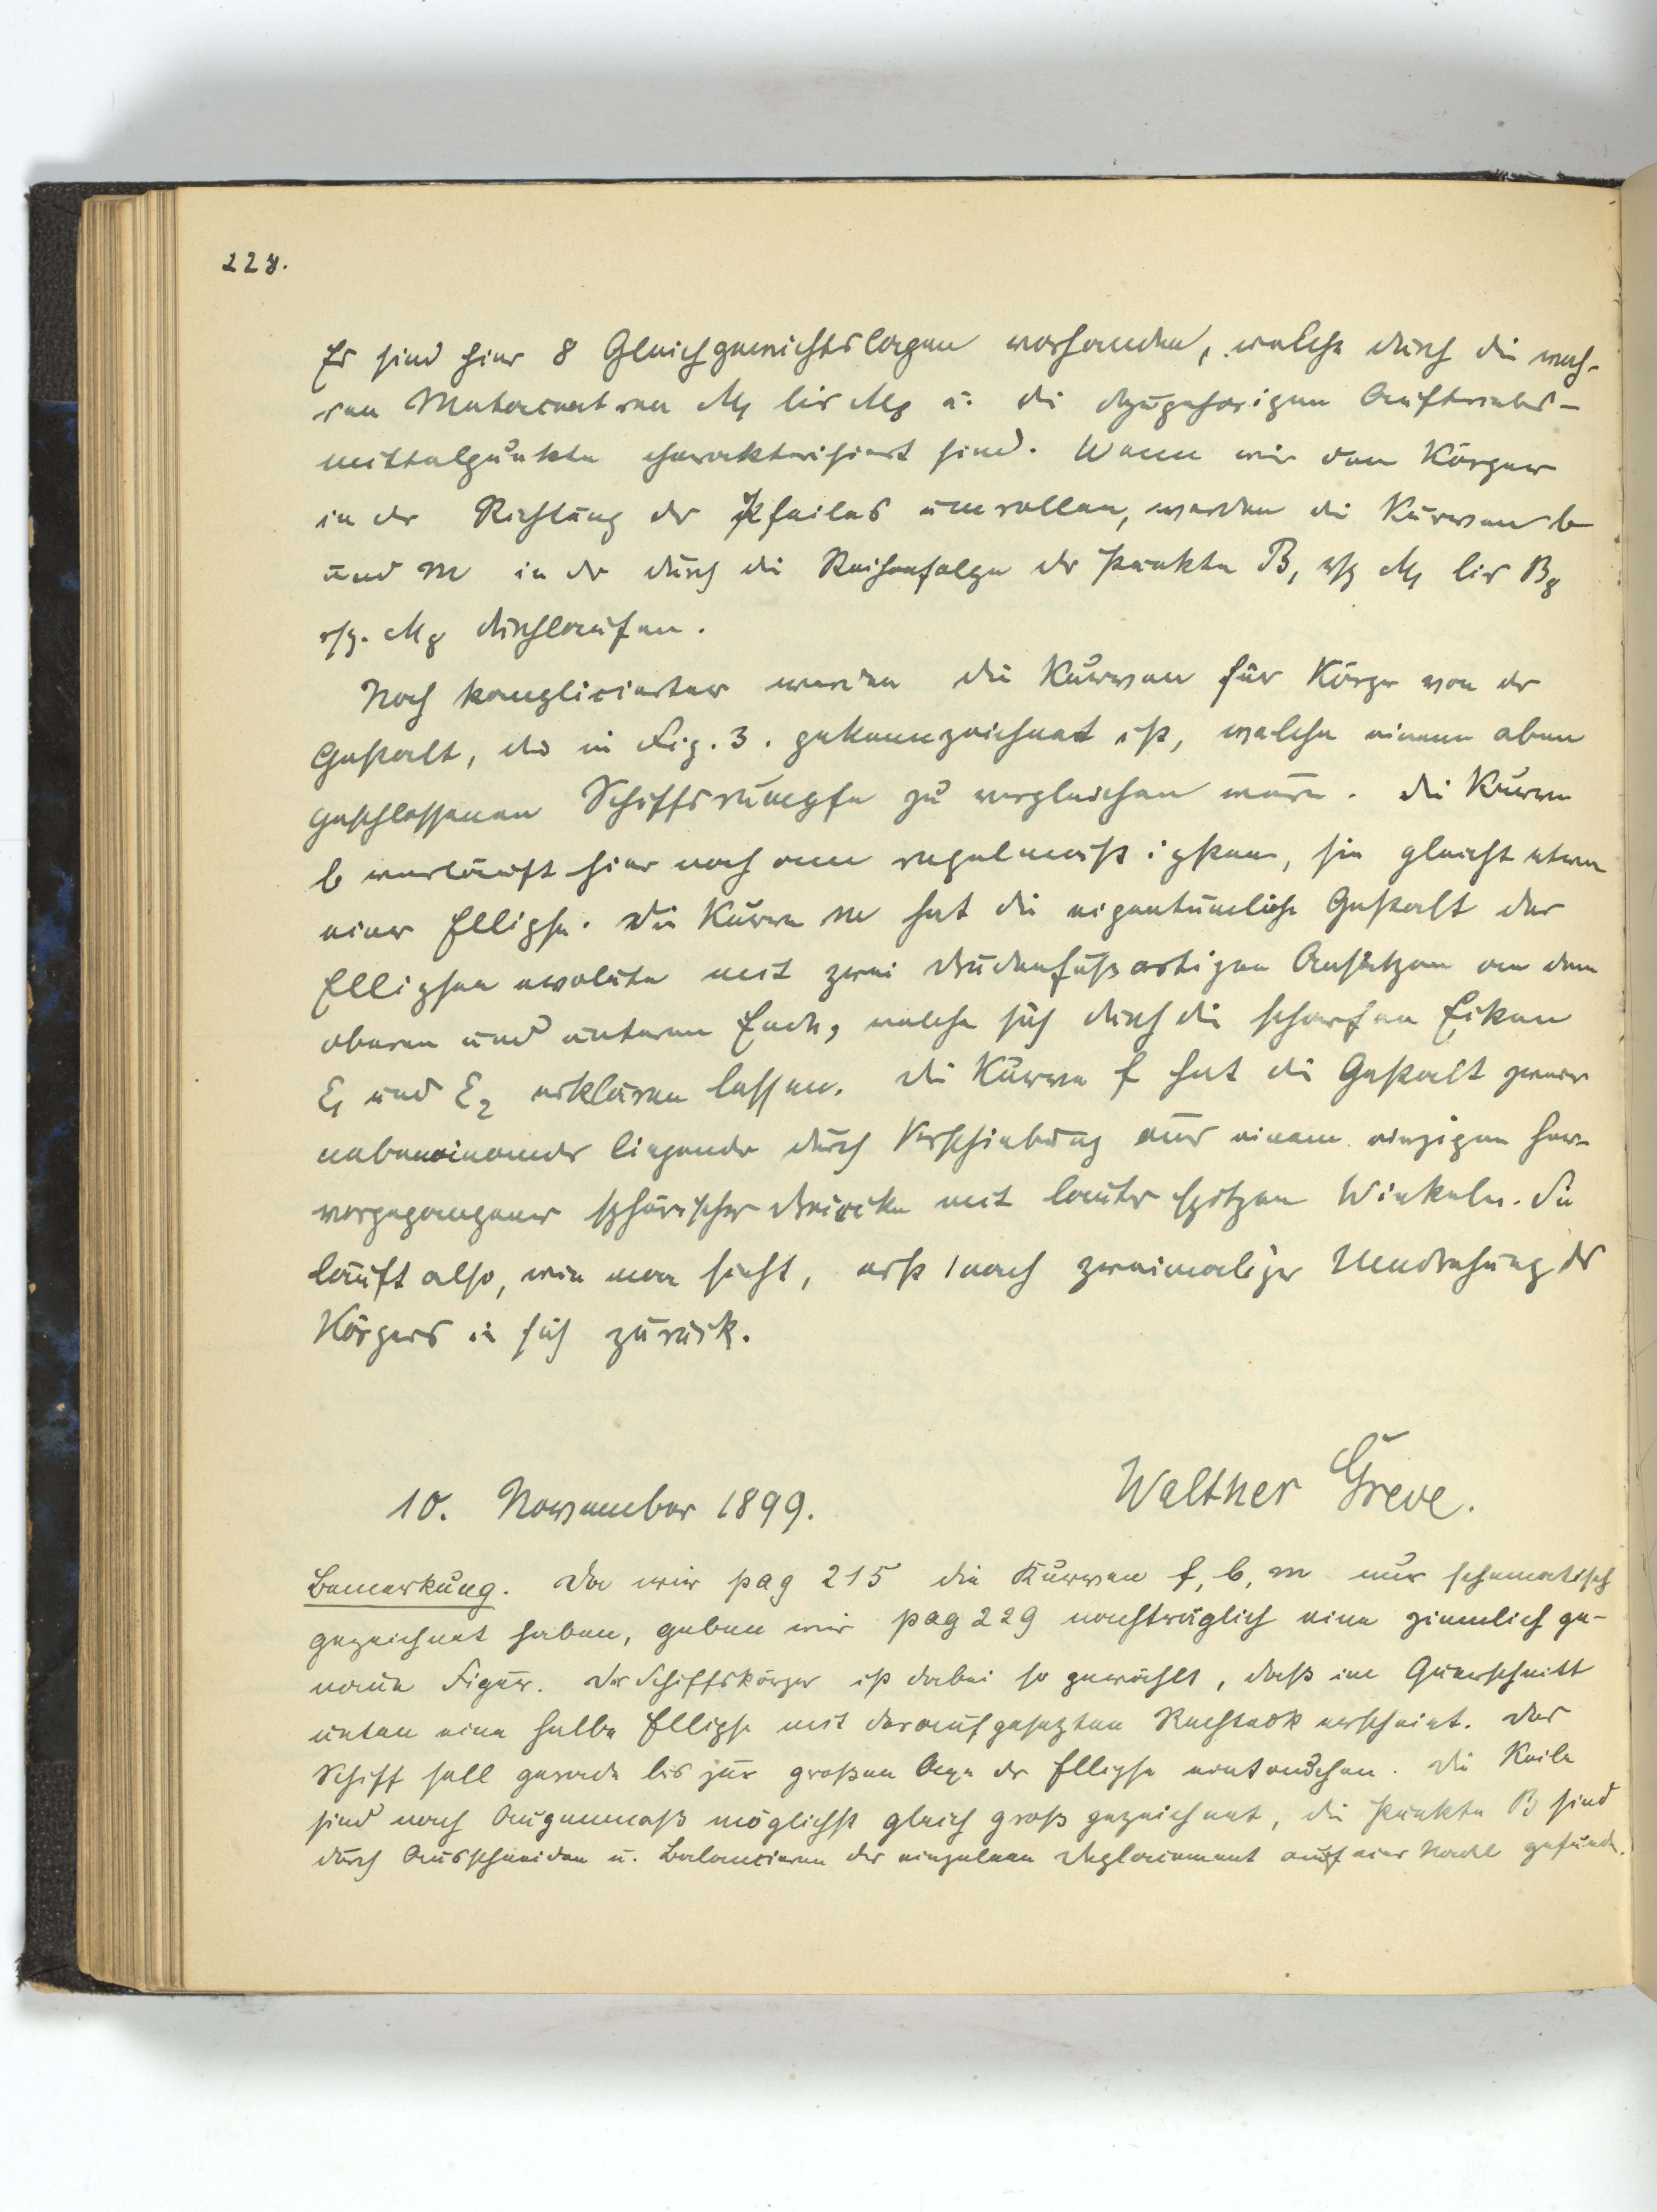 228.
Es sind hier 8 Gleichgewichtslagen vorhanden, welche durch die wah-
ren Metacentren M₁ bis M₈ u. die dazugehörigen Auftriebs-
mittelpunkte charakterisiert sind. Wenn wir den Körper
in der Richtung des Pfeiles umrollen, werden die Kurven b
und m in der durch die Reihenfolge der Punkte B₁ resp M₁ bis B₈
resp. M₈ durchlaufen.
Noch komplicierter werden die Kurven für Körper von der
Gestalt, die in Fig. 3. gekennzeichnet ist, welche einem oben
geschlossenen Schiffsrumpfe zu vergleichen wäre. Die Kurve
b verläuft hier noch am regelmäßigsten, sie gleicht etwa
einer Ellipse. Die Kurve m hat die eigentümliche Gestalt der
Ellipsenevolute mit zwei drudenfußartigen Ansätzen an dem
oberen und unteren Ende, welche sich durch die scharfen Ecken
E₁ und E₂ erklären lassen. Die Kurve f hat die Gestalt zweier
nebeneinander liegender durch Verschiebung aus einem einzigen her-
vorgegangener sphärischer Dreiecke mit lauter spitzen Winkeln. Sie
läuft also, wie man sieht, erst nach zweimaliger Umdrehung des
Körpers in sich zurück.
10. November 1899.
Walther Greve.
Bemerkung. Da wir pag 215 die Kurven f, b, m nur schematisch
gezeichnet haben, geben wir pag 229 nachträglich eine ziemlich ge-
naue Figur. Der Schiffskörper ist dabei so gewählt, daß im Querschnitt
unten eine halbe Ellipse mit daraufgesetzten Rechteck erscheint. Das
Schiff soll gerade bis zur großen Axe der Ellipse eintauchen. Die Keile
sind nach Augenmaß möglichst gleich groß gezeichnet, die Punkte B sind
durch Ausschneiden u. Balancieren der einzelnen Deplacement auf einer Nadel gefunden.